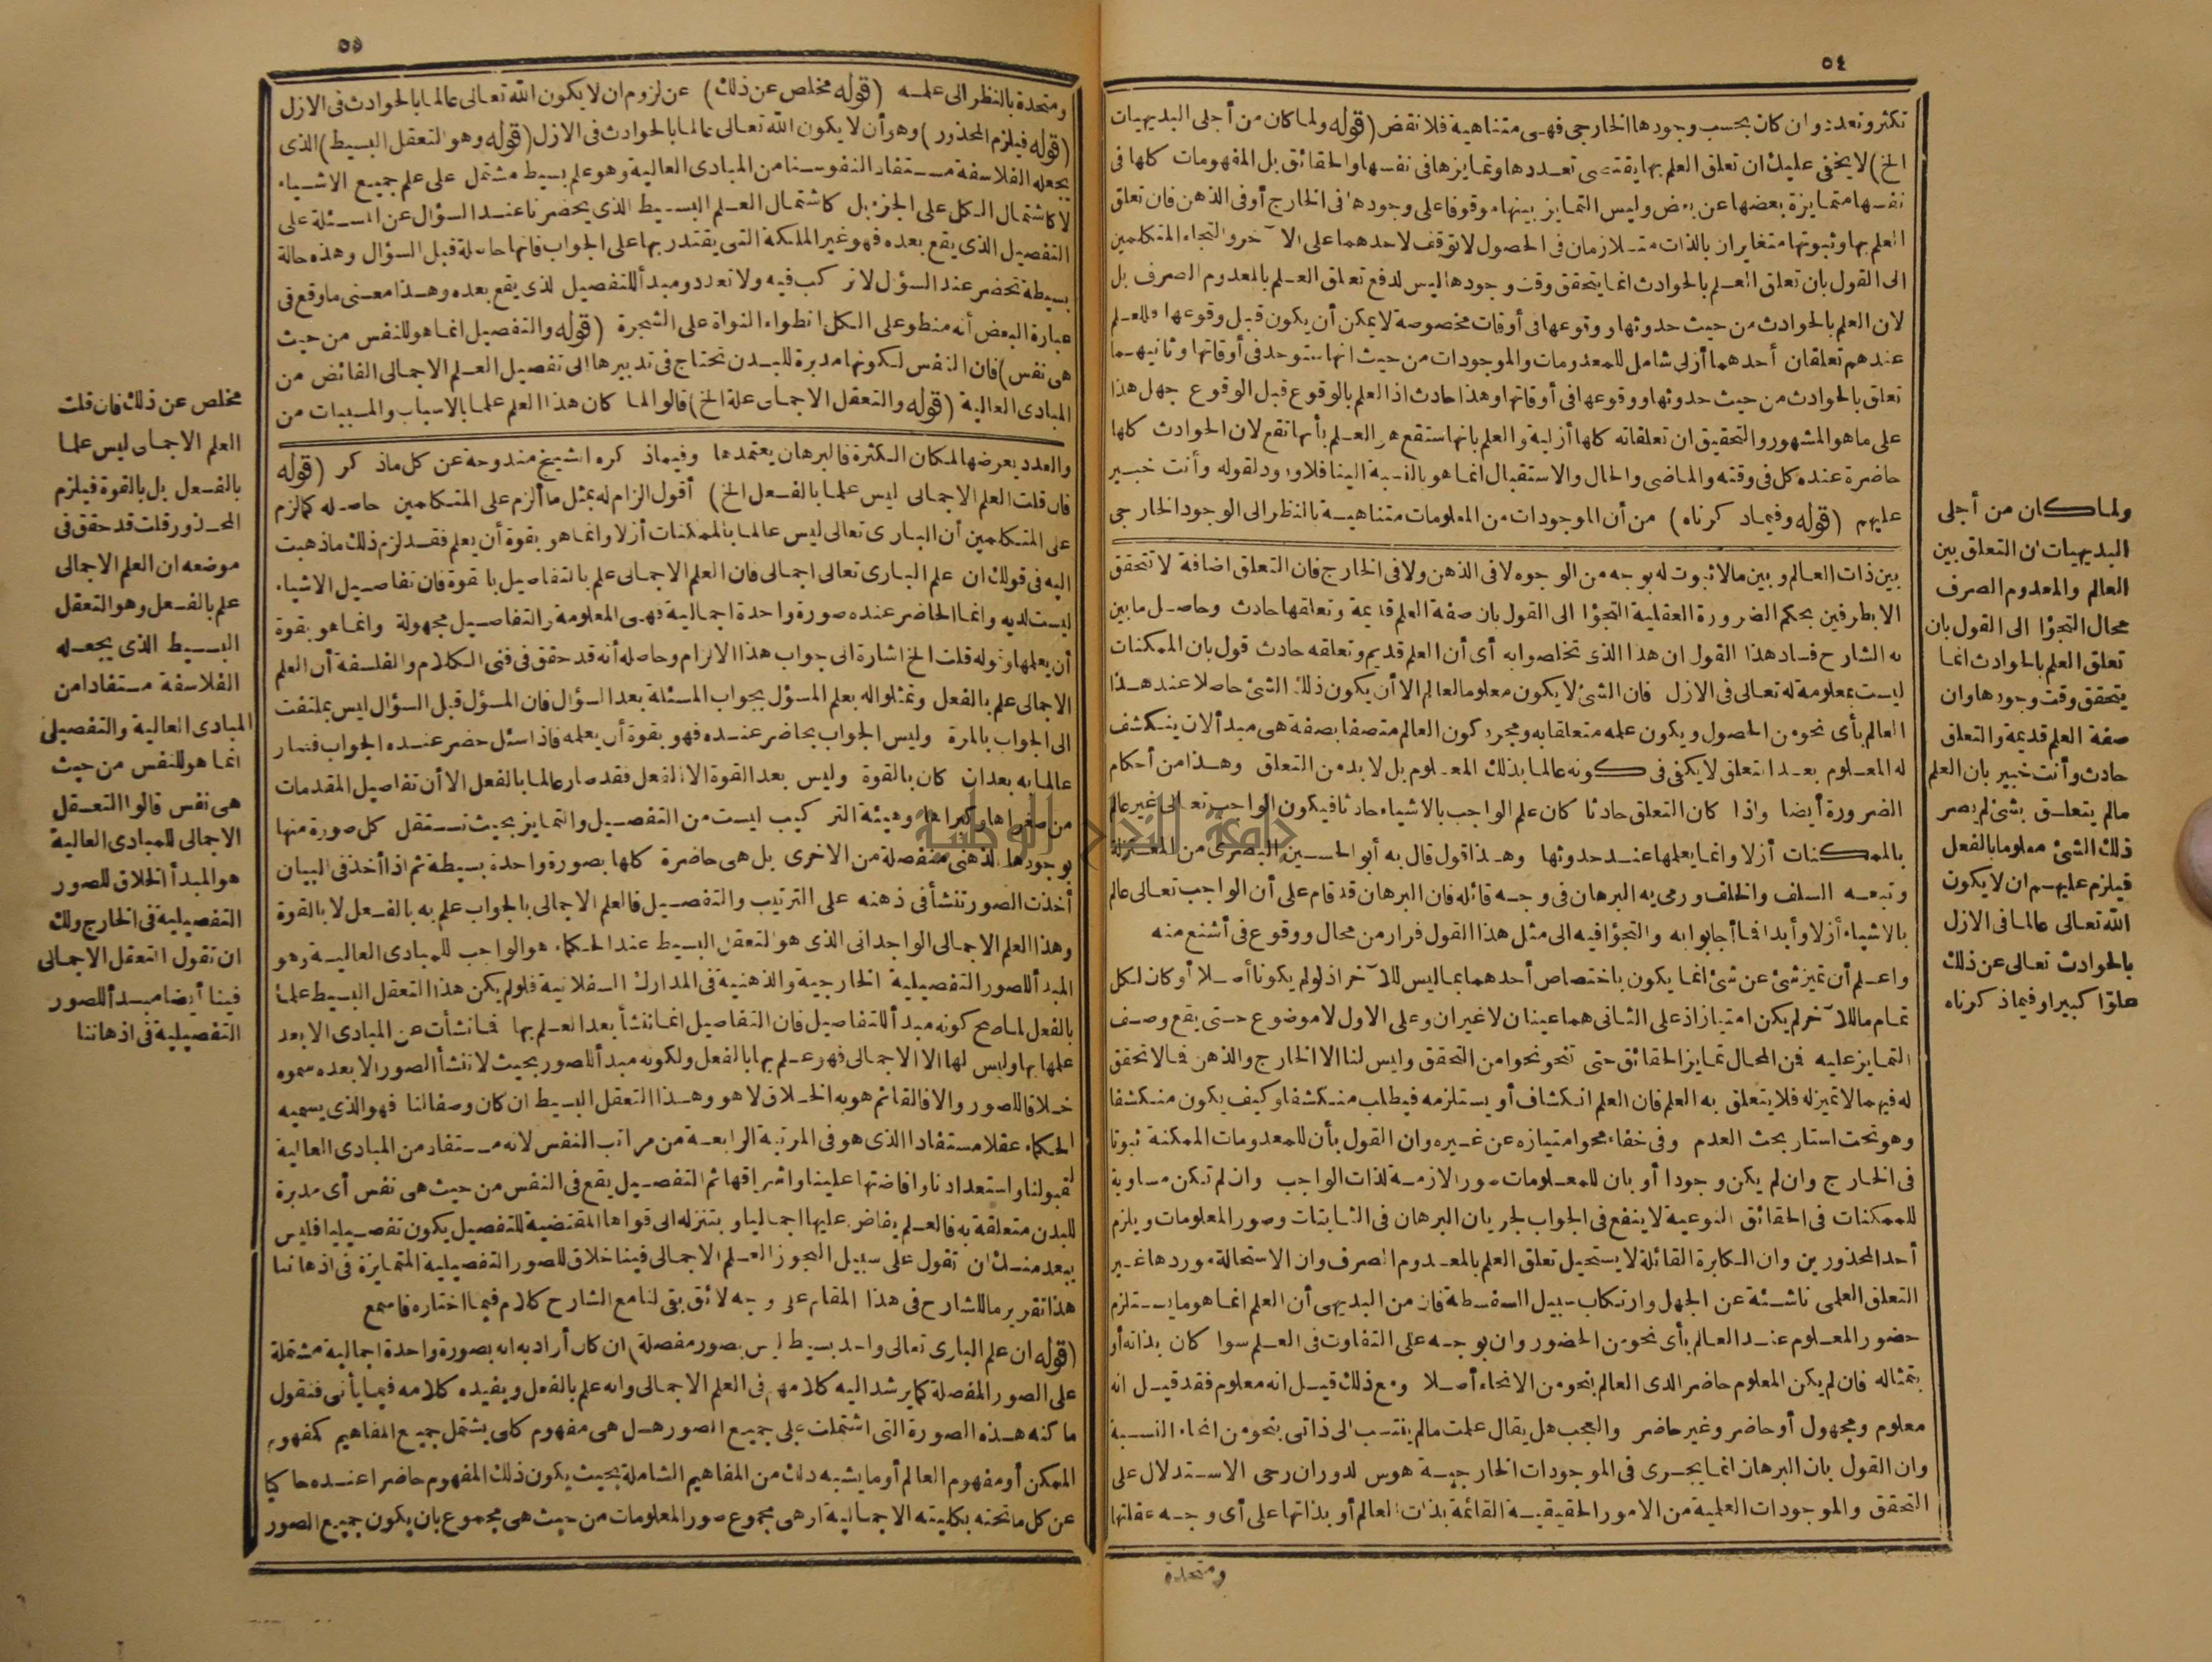 ٥٤
تكثر وتعدد وان كان بحسب وجودها الخارجى فهى متناهية فلا نقض (قوله ولما كان من أجلى البديهيات
الخ) لا يخفى عليك ان تعلق العلم بها يقتضى تعددها وتمايزها فى نفسها والحقائق بل المفهومات كلها فى
نفسها متمايزة بعضها عن بعض وليس التمايز بينها موقوفا على وجودها فى الخارج أو فى الذهن فان تعلق
العلم بها وثبوتها متغايران بالذات متلازمان فى الحصول لا توقف لاحدهما على الآخر والتجاء المتكلمين
الى القول بان تعلق العلم بالحوادث انما يتحقق وقت وجودها ليس لدفع تعلق العلم بالمعدوم الصرف بل
لان العلم بالحوادث من حيث حدوثها ووقوعها فى أوقات مخصوصة لا يمكن أن يكون قبل وقوعها فللعلم
عندهم تعلقان أحدهما أزلى شامل للمعدومات والموجودات من حيث انها ستوجد فى أوقاتها وثانيهما
تعلق بالحوادث من حيث حدوثها ووقوعها فى أوقاتها وهذا حادث اذ العلم بالوقوع قبل الوقوع جهل هذا
على ما هو المشهور والتحقيق ان تعلقاته كلها أزلية والعلم بانها ستقع هو العلم بأنها تقع لان الحوادث كلها
حاضرة عنده كل فى وقته والماضى والحال والاستقبال انما هو بالنسبة الينا فلا ورود لقوله وأنت خبير
عليهم (قوله وفيما ذكرناه) من أن الموجودات من المعلومات متناهية بالنظر الى الوجود الخارجى
بين ذات العالم وبين ما لا ثبوت له بوجه من الوجوه لا فى الذهن ولا فى الخارج فان التعلق اضافة لا تتحقق
الا بطرفين بحكم الضرورة العقلية التجؤا الى القول بان صفة العلم قديمة وتعلقها حادث وحاصل ما بين
به الشارح فساد هذا القول ان هذا الذى تخلصوا به أى أن العلم قديم وتعلقه حادث قول بان الممكنات
ليست بمعلومة له تعالى فى الازل فان الشئ لا يكون معلوما لعالم الا أن يكون ذلك الشئ حاصلا عند هذا
العالم بأى نحو من الحصول ويكون علمه متعلقا به ومجرد كون العالم متصفا بصفة هى مبدأ لان ينكشف
له المعلوم بعد التعلق لا يكفى فى كونه عالما بذلك المعلوم بل لا بد من التعلق وهذا من أحكام
الضرورة أيضا واذا كان التعلق حادثا كان علم الواجب بالاشياء حادثا فيكون الواجب تعالى غير عالم
بالممكنات أزلا وانما يعلمها عند حدوثها وهذا قول قال به أبو الحسين البصرى من المعتزلة
وتبعه السلف والخلف ورمى به البرهان فى وجه قائله فان البرهان قد قام على أن الواجب تعالى عالم
بالاشياء أزلا وأبدا فما أجابوا به والتجؤا فيه الى مثل هذا القول فرار من محال ووقوع فى أشنع منه
واعلم أن تميز شئ عن شئ انما يكون باختصاص أحدهما بما ليس للآخر اذ لو لم يكونا أصلا أو كان لكل
تمام ما للآخر لم يكن امتياز اذ على الثانى هما عينان لا غيران وعلى الاول لا موضوع حتى يقع وصف
التمايز عليه فمن المحال تمايز الحقائق حتى تنحو نحوا من التحقق وليس لنا الا الخارج والذهن فما لا تحقق
له فيهما لا تميز له فلا يتعلق به العلم فان العلم انكشاف أو يستلزمه فيطلب منكشفا وكيف يكون منكشفا
وهو تحت استار بحث العدم وفى خفاء محو امتيازه عن غيره وان القول بأن للمعدومات الممكنة ثبوتا
فى الخارج وان لم يكن وجودا أو بان للمعلومات صورا لازمة لذات الواجب وان لم تكن مساوية
للممكنات فى الحقائق النوعية لا ينفع فى الجواب لجريان البرهان فى الثابتات وصور المعلومات ويلزم
أحد المحذورين وان المكابرة القائلة لا يستحيل تعلق العلم بالمعدوم الصرف وان الاستحالة موردها غير
التعلق العلمى ناشئة عن الجهل وارتكاب سبيل السفسطة فان من البديهى أن العلم انما هو ما يستلزم
حضور المعلوم عند العالم بأى نحو من الحضور وان بوجه على التفاوت فى العلم سواء كان بذاته أو
بتمثاله فان لم يكن المعلوم حاضر الدى العالم بنحو من الانحاء أصلا ومع ذلك قيل انه معلوم فقد قيل انه
معلوم ومجهول أو حاضر وغير حاضر والعجب هل يقال علمت ما لم ينتسب الى ذاتى بنحو من انحاء النسبة
وان القول بان البرهان انما يجرى فى الموجودات الخارجية هوس لدوران رحى الاستدلال على
التحقق والموجودات العلمية من الامور الحقيقية القائمة بذات العالم أو بذاتها على أى وجه عقلتها
ومتحدة
ولما كان من أجلى
البديهيات ان التعلق بين
العالم والمعدوم الصرف
محال التجؤا الى القول بان
تعلق العلم بالحوادث انما
يتحقق وقت وجودها وان
صفة العلم قديمة والتعلق
حادث وأنت خبير بان العلم
ما لم يتعلق بشئ لم يصر
ذلك الشئ معلوما بالفعل
فيلزم عليهم ان لا يكون
الله تعالى عالما فى الازل
بالحوادث تعالى عن ذلك
علوّا كبيرا وفيما ذكرناه
٥٥
ومتحدة بالنظر الى علمه (قوله مخلص عن ذلك) عن لزوم ان لا يكون الله تعالى عالما بالحوادث فى الازل
(قوله فيلزم المحذور) وهو أن لا يكون الله تعالى عالما بالحوادث فى الازل (قوله وهو التعقل البسيط) الذى
يجعله الفلاسفة مستفاد النفوسنا من المبادى العالية وهو علم بسيط مشتمل على علم جميع الاشياء
لا كاشتمال الكل على الجزء بل كاشتمال العلم البسيط الذى يحضرنا عند السؤال عن المسئلة على
التفصيل الذى يقع بعده فهو غير الملكة التى يقتدر بها على الجواب فانها حاصلة قبل السؤال وهذه حالة
بسيطة تحضر عند السؤل لا تركب فيه ولا تعدد ومبدأ للتفصيل لذى يقع بعده وهذا معنى ما وقع فى
عبارة البعض أنه منطو على الكل انطواء النواة على الشجرة (قوله والتفصيل انما هو للنفس من حيث
هى نفس) فان النفس لكونها مدبرة للبدن تحتاج فى تدبيرها الى تفصيل العلم الاجمالى الفائض من
المبادى العالية (قوله والتعقل الاجمالى علة الخ) قالوا لما كان هذا العلم علما بالاسباب والمسببات من
والعدد يعرضها لمكان الكثرة فالبرهان يعتمدها وفيما ذكره الشيخ مندوحة عن كل ما ذكر (قوله
فان قلت العلم الاجمالى ليس علما بالفعل الخ) أقول الزام له بمثل ما ألزم على المتكلمين حاصله كما لزم
على المتكلمين أن البارى تعالى ليس عالما بالممكنات أزلا وانما هو بقوة أن يعلم فقد لزم ذلك ما ذهبت
اليه فى قولك ان علم البارى تعالى اجمالى فان العلم الاجمالى علم بالتفاصيل بالقوة فان تفاصيل الاشياء
ليست لديه وانما الحاضر عنده صورة واحدة اجمالية فهى المعلومة والتفاصيل مجهولة وانما هو بقوة
أن يعلمها وقوله قلت الخ اشارة الى جواب هذا الالزام وحاصله أنه قد حقق فى فنى الكلام والفلسفة أن العلم
الاجمالى علم بالفعل وتمثلوا له بعلم المسؤل بجواب المسئلة بعد السؤال فان المسؤل قبل السؤال ليس بملتفت
الى الجواب بالمرة وليس الجواب بحاضر عنده فهو بقوة أن يعلمه فاذا سئل حضر عنده الجواب فصار
عالما به بعد ان كان بالقوة وليس بعد القوة الا الفعل فقد صار عالما بالفعل الا أن تفاصيل المقدمات
من صغراها وكبراها وهيئة التركيب ليست من التفصيل والتمايز بحيث تستقل كل صورة منها
بوجودها الذهنى منفصلة من الاخرى بل هى حاضرة كلها بصورة واحدة بسيطة ثم اذا أخذ فى البيان
أخذت الصور تنشأ فى ذهنه على الترتيب والتفصيل فالعلم الاجمالى بالجواب علم به بالفعل لا بالقوة
وهذا العلم الاجمالى الواجدانى الذى هو التعقل البسيط عند الحكماء هو الواجب للمبادى العالية وهو
المبدأ للصور التفصيلية الخارجية والذهنية فى المدارك السفلانية فلو لم يكن هذا التعقل البسيط علما
بالفعل لما صح كونه مبدأ للتفاصيل فان التفاصيل انما تنشأ بعد العلم بها فما نشأت عن المبادى الا بعد
علمها بها وليس لها الا الاجمالى فهو علم بها بالفعل ولكونه مبدأ للصور بحيث لا تنشأ الصور الا بعده سموه
خلاقا للصور والا فالقائم هو به الخلاق لا هو وهذا التعقل البسيط ان كان وصفا لنا فهو الذى يسميه
الحكماء عقلا مستفادا الذى هو فى المرتبة الرابعة من مراتب النفس لانه مستفاد من المبادى العالية
لقبولنا واستعدادنا وافاضتها علينا واشراقها ثم التفصيل يقع فى النفس من حيث هى نفس أى مدبرة
للبدن متعلقة به فالعلم يفاض عليها اجماليا وبتنزله الى قواها المقتضية للتفصيل يكون تفصيليا فليس
ببعد منك ان تقول على سبيل التجوز العلم الاجمالى فينا خلاق للصور التفصيلية المتمايزة فى اذهاننا
هذا تقرير ما للشارح فى هذا المقام على وجه لائق بقى لنا مع الشارح كلام فيما اختاره فاسمع
(قوله ان علم البارى تعالى واحد بسيط ليس بصور مفصلة) ان كان أراد به انه بصورة واحدة اجمالية مشتملة
على الصور المفصلة كما يرشد اليه كلامهم فى العلم الاجمالى وانه علم بالفعل ويفيده كلامه فيما يأتى فنقول
ما كنه هذه الصورة التى اشتملت على جميع الصور هل هى مفهوم كلى يشتمل جميع المفاهيم كمفهوم
الممكن أو مفهوم العالم أو ما يشبه ذلك من المفاهيم الشاملة بحيث يكون ذلك المفهوم حاضرا عنده حاكيا
عن كل ما تحته بكليته الاجمالية أو هى مجموع صور المعلومات من حيث هى مجموع بان يكون جميع الصور
مخلص عن ذلك فان قلت
العلم الاجمالى ليس علما
بالفعل بل بالقوة فيلزم
المحذور قلت قد حقق فى
موضعه ان العلم الاجمالى
علم بالفعل وهو التعقل
البسيط الذى يجعله
الفلاسفة مستفادا من
المبادى العالية والتفصيلى
انما هو للنفس من حيث
هى نفس قالوا التعقل
الاجمالى للمبادى العالية
هو المبدأ الخلاق للصور
التفصيلية فى الخارج ولك
ان تقول التعقل الاجمالى
فينا أيضا مبدأ للصور
التفصيلية فى اذهاننا
جامعة النجاح الوطنية